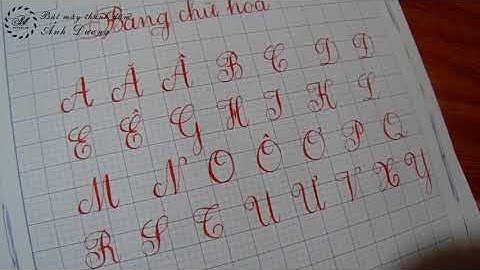 Bút mài thanh đậm
Ánh Dương
Bảng chữ hoa
A Ă Â B C D Đ
E Ê G H I K L
M N O Ô Ơ P Q
R S T U Ư V X Y